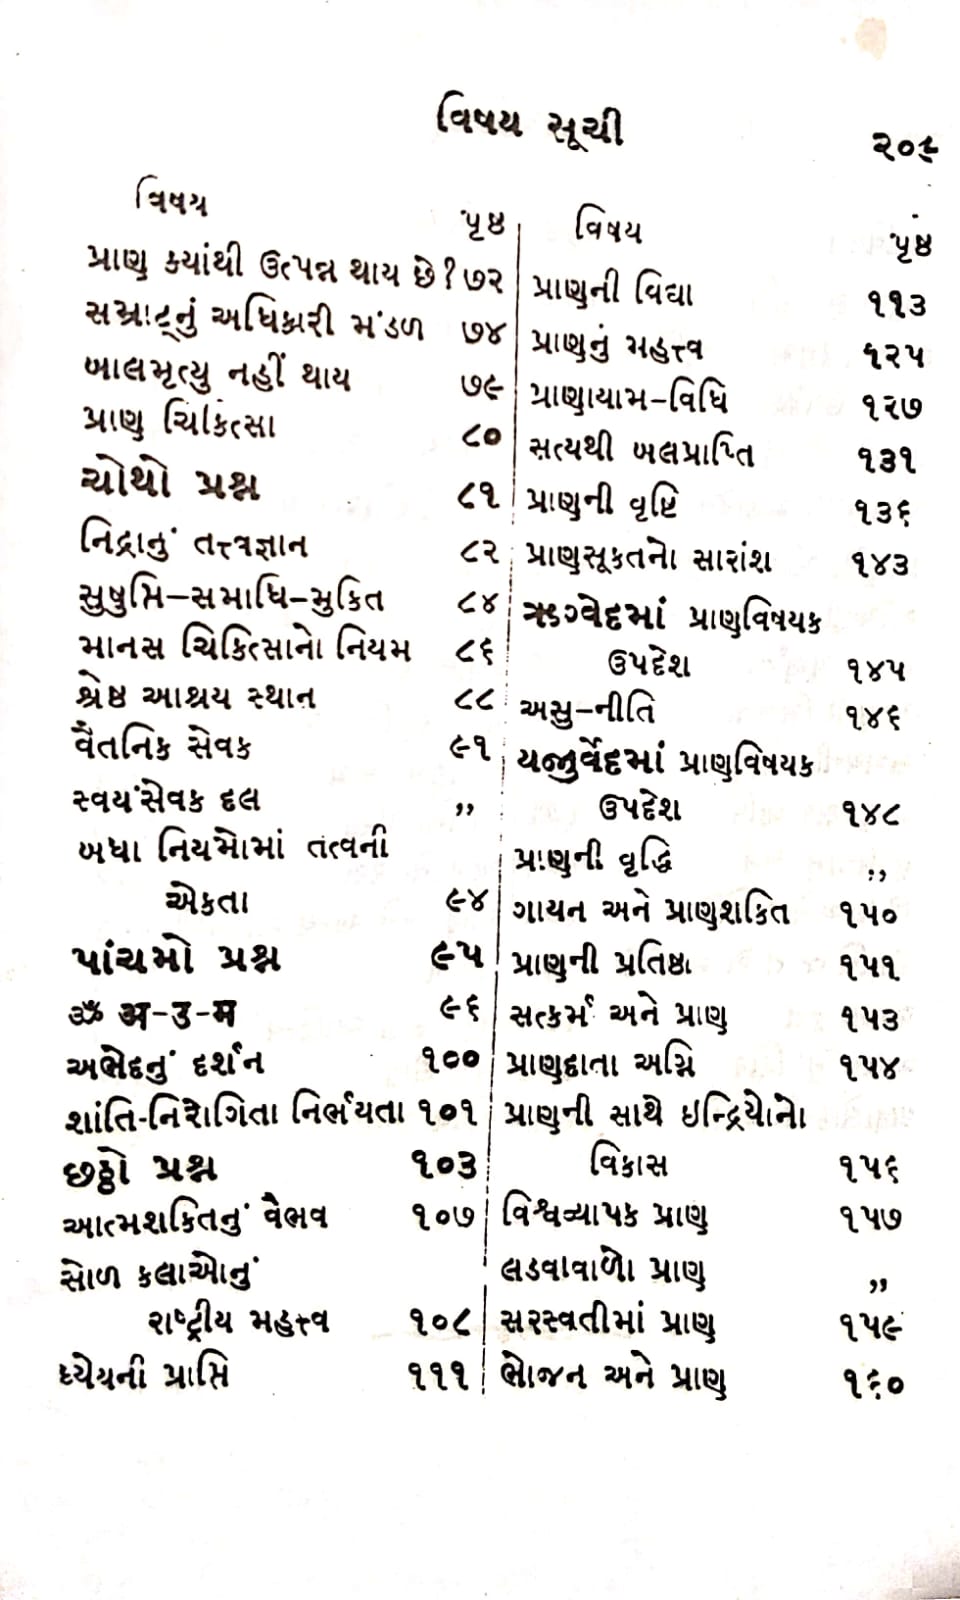 વિષય સૂચી
૨૦૯
વિષય પૃષ્ઠ
પ્રાણ ક્યાંથી ઉત્પન્ન થાય છે? ૭૨
સમ્રાટ્નું અધિકારી મંડળ ૭૪
બાલમૃત્યુ નહીં થાય ૭૯
પ્રાણ ચિકિત્સા ૮૦
ચોથો પ્રશ્ન ૮૧
નિદ્રાનું તત્ત્વજ્ઞાન ૮૨
સુષુપ્તિ–સમાધિ–મુકિત ૮૪
માનસ ચિકિત્સાનો નિયમ ૮૬
શ્રેષ્ઠ આશ્રય સ્થાન ૮૮
વૈતનિક સેવક ૯૧
સ્વયંસેવક દલ ,,
બધા નિયમોમાં તત્વની
એકતા ૯૪
પાંચમો પ્રશ્ન ૯૫
ૐ अ-उ-म ૯૬
અભેદનું દર્શન ૧૦૦
શાંતિ-નિરોગિતા નિર્ભયતા ૧૦૧
છઠ્ઠો પ્રશ્ન ૧૦૩
આત્મશકિતનું વૈભવ ૧૦૭
સોળ કલાઓનું
રાષ્ટ્રીય મહત્ત્વ ૧૦૮
ધ્યેયની પ્રાપ્તિ ૧૧૧
વિષય પૃષ્ઠ
પ્રાણની વિદ્યા ૧૧૩
પ્રાણનું મહત્ત્વ ૧૨૫
પ્રાણાયામ–વિધિ ૧૨૭
સત્યથી બલપ્રાપ્તિ ૧૩૧
પ્રાણની વૃષ્ટિ ૧૩૬
પ્રાણસૂકતનો સારાંશ ૧૪૩
ઋગ્વેદમાં પ્રાણવિષયક
ઉપદેશ ૧૪૫
અસુ–નીતિ ૧૪૬
યજુર્વેદમાં પ્રાણવિષયક
ઉપદેશ ૧૪૮
પ્રાણની વૃદ્ધિ ,,
ગાયન અને પ્રાણશકિત ૧૫૦
પ્રાણની પ્રતિષ્ઠા ૧૫૧
સત્કર્મ અને પ્રાણ ૧૫૩
પ્રાણદાતા અગ્નિ ૧૫૪
પ્રાણની સાથે ઇન્દ્રિયોનો
વિકાસ ૧૫૬
વિશ્વવ્યાપક પ્રાણ ૧૫૭
લડવાવાળો પ્રાણ ,,
સરસ્વતીમાં પ્રાણ ૧૫૯
ભોજન અને પ્રાણ ૧૬૦